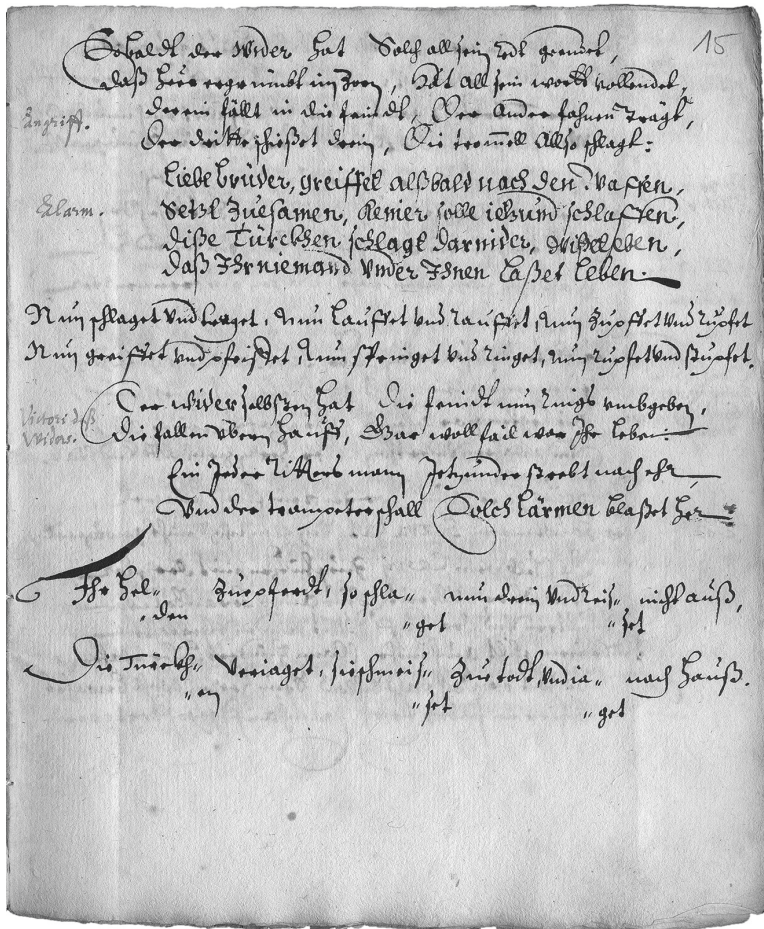 15
Sobaldt der Wider hat Solch all sein redt geendet,
daß Heer ergrimbt im Zorn, Hat all sein wortt vollendet,
Angriff.
der ein fällt in die feindt, Der Ander fahnen Trägt,
Der dritte schießet drein, Die trommell Allso schlagt:
Liebe brüder, greiffet alßbald nach den Waffen,
Alarm.
Setzt Zuesamen, Keiner solle ietzund schlaffen,
diße Türckhen schlagt darnider, eben,
daß Ihr niemand Vnder Ihnen Laßet Leben.
Nun schlaget vnd traget, Nun Lauffet vnd rauffet, Nun Zupffet vnd rupfet
Nun greiffet vnd pfeiffet, Nun springet vnd ringet, Nun rupfet vnd stupfet.
Victori deß
Widers.
Der Wider selbsten hat die feindt nun rings vmbgeben,
die fallen vbern hauff, Gar wollfail war Ihr leben.
Ein Jeder Rittersmann Jetzunder strebt nach ehr,
Vnd der trompeter schall Solch Lärmen blaßet her
Ihr Hel- Zu pferdt, so schla- nun drein vnd reis- nicht auß,
den get set
Die Türckh- veriaget, sie schmeis- Zue todt, vnd ia- nach Hauß.
en set get